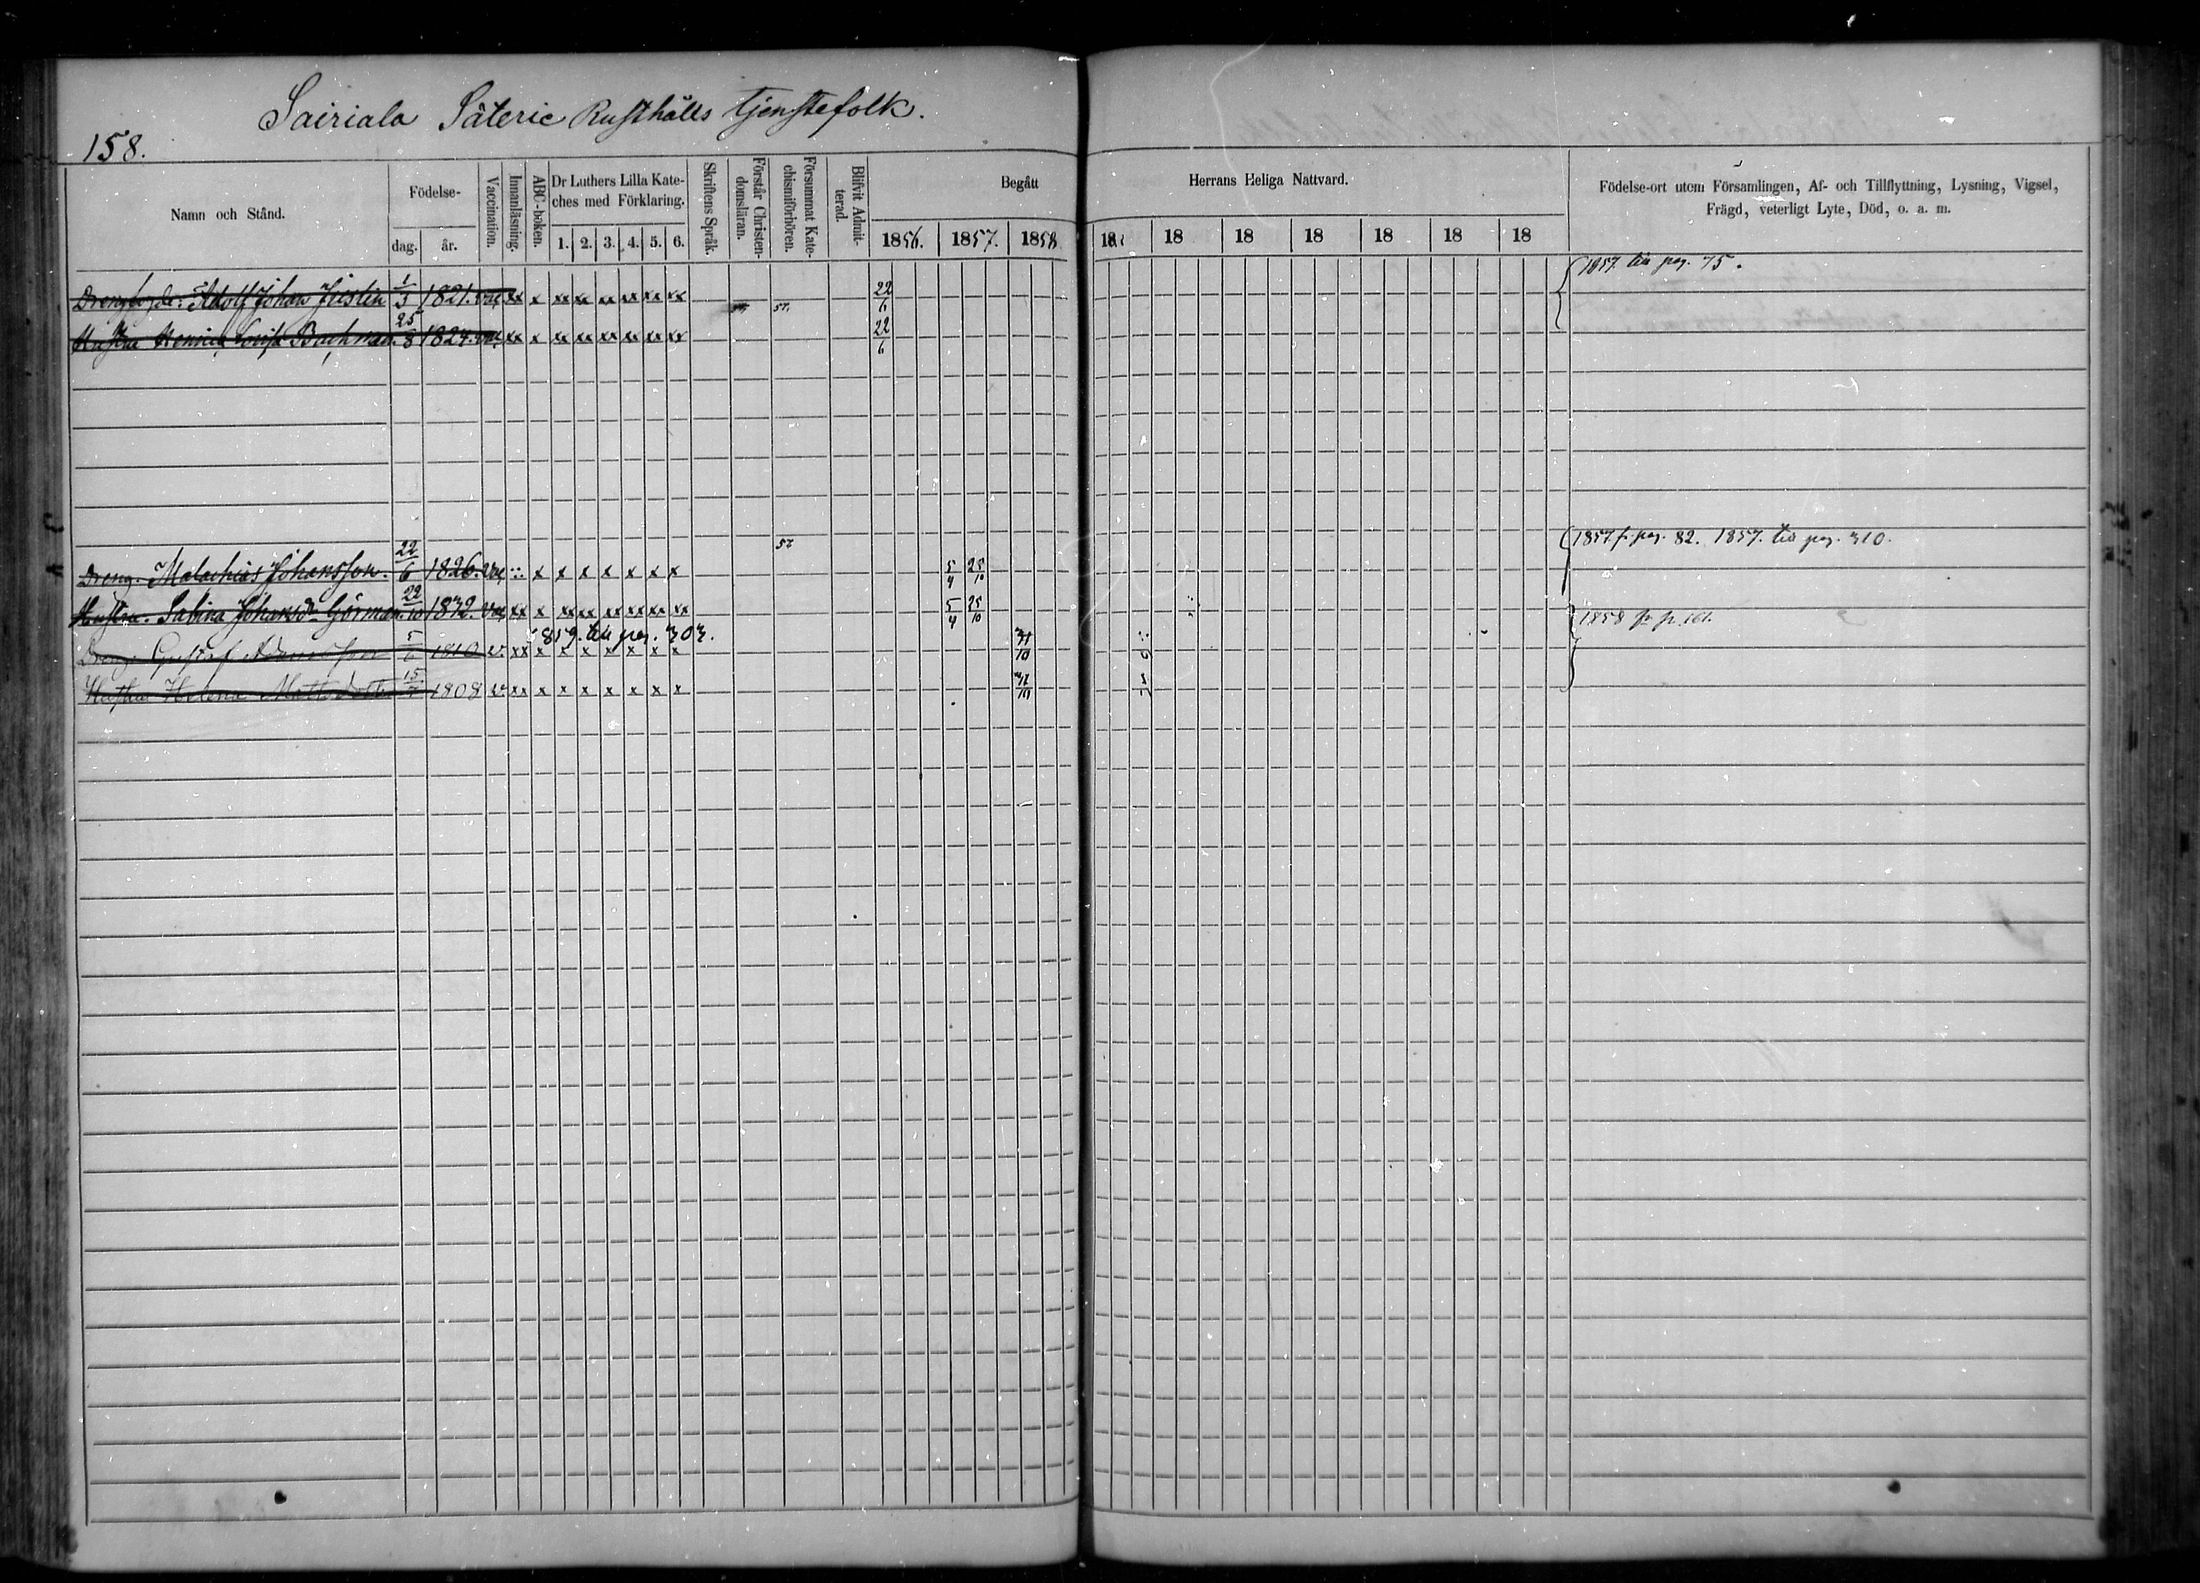 Sairiala Säterie Rusthålls tjenstefolk.
158.
Namn och Stånd.
Födelse-
dag. år.
Vaccination.
Innanläsning.
ABC-boken.
Dr Luthers Lilla Kate-
ches med Förklaring.
1. 2. 3. 4. 5. 6.
Skriftens Språk.
Förstår Christen-
domsläran.
Försummat Kate-
chismiförhören.
Blifvit Admit-
terad.
Begått Herrans Heliga Nattvard.
1856. 1857. 1858 18 18 18 18 18 18 18
Födelse-ort utom Församlingen, Af- och Tillflyttning, Lysning, Vigsel,
Frägd, veterligt Lyte, Död, o. a. m.
Adolf Johan 1/3 1821. vac. xx x xx xx xx xx xx xx 57. 22/6 1857. till pag. 75.
Hustru Bachman. 25/8 1824. vac. xx x xx xx xx xx xx xx 22/6
Dreng. Malachias Johansson. 22/6 1826. vac x x x x x x x 57 5/4 25/10 1857 fr. pag. 82. 1857. till pag. 310.
Hustru. Sabina Johansdr Görman. 22/10 1832. vac xx x xx xx xx xx xx xx 5/4 25/10
1859. till pag. 303.
Dreng. Gustaf 5/6 1810 v. xx x x x x x x x 31/10 1858 fr p. 161.
Hustru Helena Mattsdotter 15/7 1808 v xx x x x x x x x 31/10